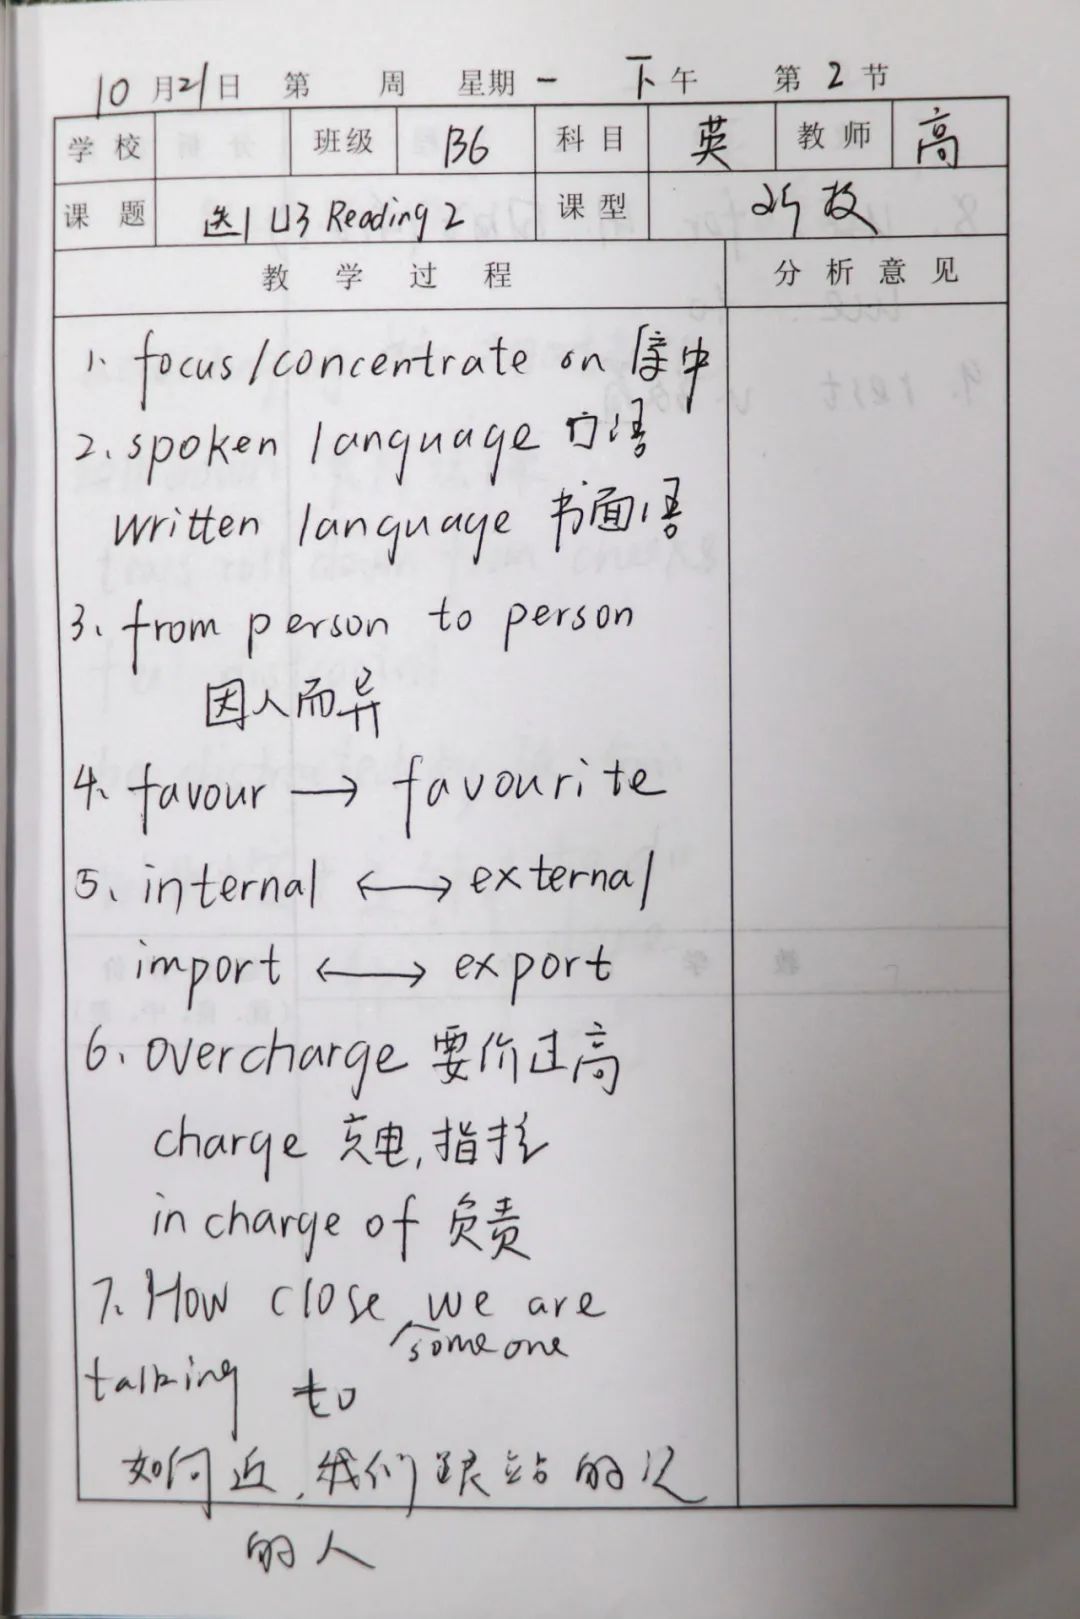 10月21日 第 周 星期一 下午 第2节
学校 班级 B6 科目 英 教师 高
课题 选1 U3 Reading 2 课型 新授
教学过程 分析意见
1. focus/concentrate on 集中
2. spoken language 口语
written language 书面语
3. from person to person
因人而异
4. favour → favourite
5. internal ↔ external
import ↔ export
6. overcharge 要价过高
charge 充电,指控
in charge of 负责
7. How close we are
someone
talking to
如何近,我们跟站的近
的人